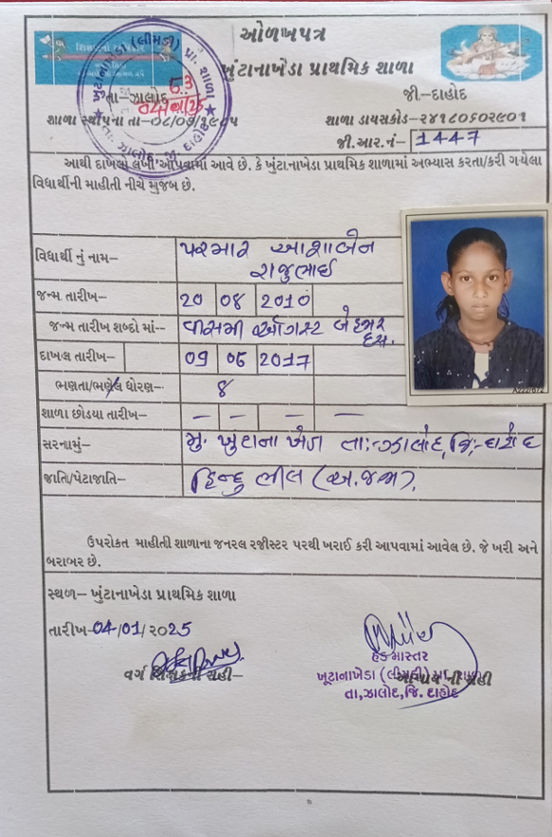 ઓળખપત્ર
ખુંટાનાખેડા પ્રાથમિક શાળા
તા-ઝાલોદ
જી-દાહોદ
શાળા સ્થાપના તા-૦૮/૦૭/૧૯૮૫
શાળા ડાયસકોડ-૨૪૧૮૦૬૦૨૯૦૧
જી.આર.નં- 1447
આથી દાખલો લખી આપવામાં આવે છે. કે ખુંટાનાખેડા પ્રાથમિક શાળામાં અભ્યાસ કરતા/કરી ગયેલા
વિદ્યાર્થીની માહીતી નીચે મુજબ છે.
વિદ્યાર્થી નું નામ- પરમાર આશાબેન
રાજુભાઈ
જન્મ તારીખ- 20 08 2010
જન્મ તારીખ શબ્દો માં- વીસમી ઓગસ્ટ બે હજાર
દસ.
દાખલ તારીખ- 09 06 2017
ભણતા/ભણેલ ધોરણ- ૪
શાળા છોડયા તારીખ- - - - -
સરનામું- મુ. ખુટાના ખેડા તા:-ઝાલોદ, જિ:-દાહોદ
જાતિ/પેટાજાતિ- હિન્દુ ભીલ (અ.જજા).
ઉપરોકત માહીતી શાળાના જનરલ રજીસ્ટર પરથી ખરાઈ કરી આપવામાં આવેલ છે. જે ખરી અને
બરાબર છે.
સ્થળ- ખુંટાનાખેડા પ્રાથમિક શાળા
તારીખ-04/01/૨૦25
વર્ગ શિક્ષકની સહી-
હેડ માસ્તર
ખૂટાનાખેડા (લીમડી) પ્રા. શાળા
આચાર્ય ની સહી
તા,ઝાલોદ,જિ. દાહોદ